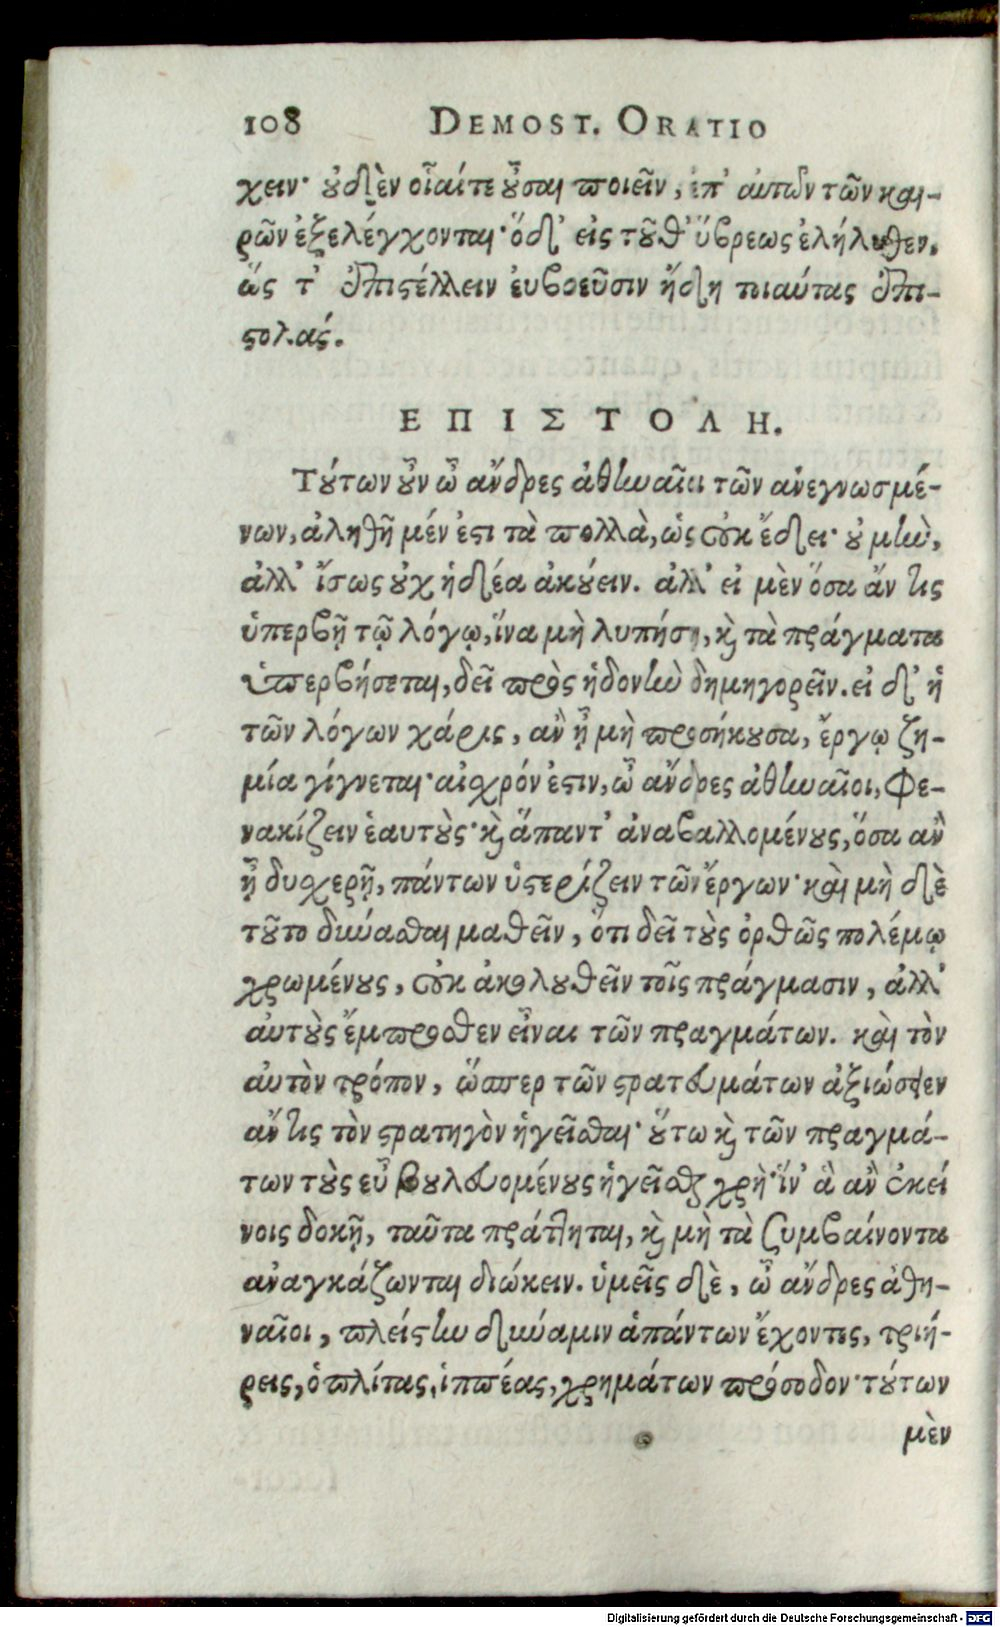 108 DEMOST. ORATIO
χειν· οὐδὲν οἷαί τε οὖσαι ποιεῖν, ἐπ' αὐτῶν τῶν και-
ρῶν ἐξελέγχονται· ὁ δ' εἰς τοῦθ' ὕβρεως ἐλήλυθεν,
ὥς τ' ἐπιστέλλειν εὐβοεῦσιν ἤδη τοιαύτας ἐπι-
στολάς.
ΕΠΙΣΤΟΛΗ.
Τούτων οὖν ὦ ἄνδρες ἀθηναῖοι τῶν ἀνεγνωσμέ-
νων, ἀληθῆ μέν ἐστι τὰ πολλὰ, ὡς οὐκ ἔδει· οὐ μὴν,
ἀλλ' ἴσως οὐχ ἡδέα ἀκούειν. ἀλλ' εἰ μὲν ὅσα ἄν τις
ὑπερβῇ τῷ λόγῳ, ἵνα μὴ λυπήσῃ, καὶ τὰ πράγματα
ὑπερβήσεται, δεῖ πρὸς ἡδονὴν δημηγορεῖν. εἰ δ' ἡ
τῶν λόγων χάρις, ἂν ᾖ μὴ προσήκουσα, ἔργῳ ζη-
μία γίγνεται· αἰσχρόν ἐστιν, ὦ ἄνδρες ἀθηναῖοι, φε-
νακίζειν ἑαυτοὺς· καὶ ἅπαντ' ἀναβαλλομένους, ὅσα ἂν
ᾖ δυσχερῆ, πάντων ὑστερίζειν τῶν ἔργων· καὶ μὴ δὲ
τοῦτο δύνασθαι μαθεῖν, ὅτι δεῖ τοὺς ὀρθῶς πολέμῳ
χρωμένους, οὐκ ἀκολουθεῖν τοῖς πράγμασιν, ἀλλ'
αὐτοὺς ἔμπροσθεν εἶναι τῶν πραγμάτων. καὶ τὸν
αὐτὸν τρόπον, ὥσπερ τῶν στρατευμάτων ἀξιώσειεν
ἄν τις τὸν στρατηγὸν ἡγεῖσθαι· οὕτω καὶ τῶν πραγμά-
των τοὺς εὖ βουλευομένους ἡγεῖσθαι χρὴ· ἵν' ἃ ἂν ἐκεί
νοις δοκῇ, ταῦτα πράττηται, καὶ μὴ τὰ ξυμβαίνοντα
ἀναγκάζωνται διώκειν. ὑμεῖς δὲ, ὦ ἄνδρες ἀθη-
ναῖοι, πλείστην δύναμιν ἁπάντων ἔχοντες, τριή-
ρεις, ὁπλίτας, ἱππέας, χρημάτων πρόσοδον· τούτων
μὲν
Digitalisierung gefördert durch die Deutsche Forschungsgemeinschaft - DFG